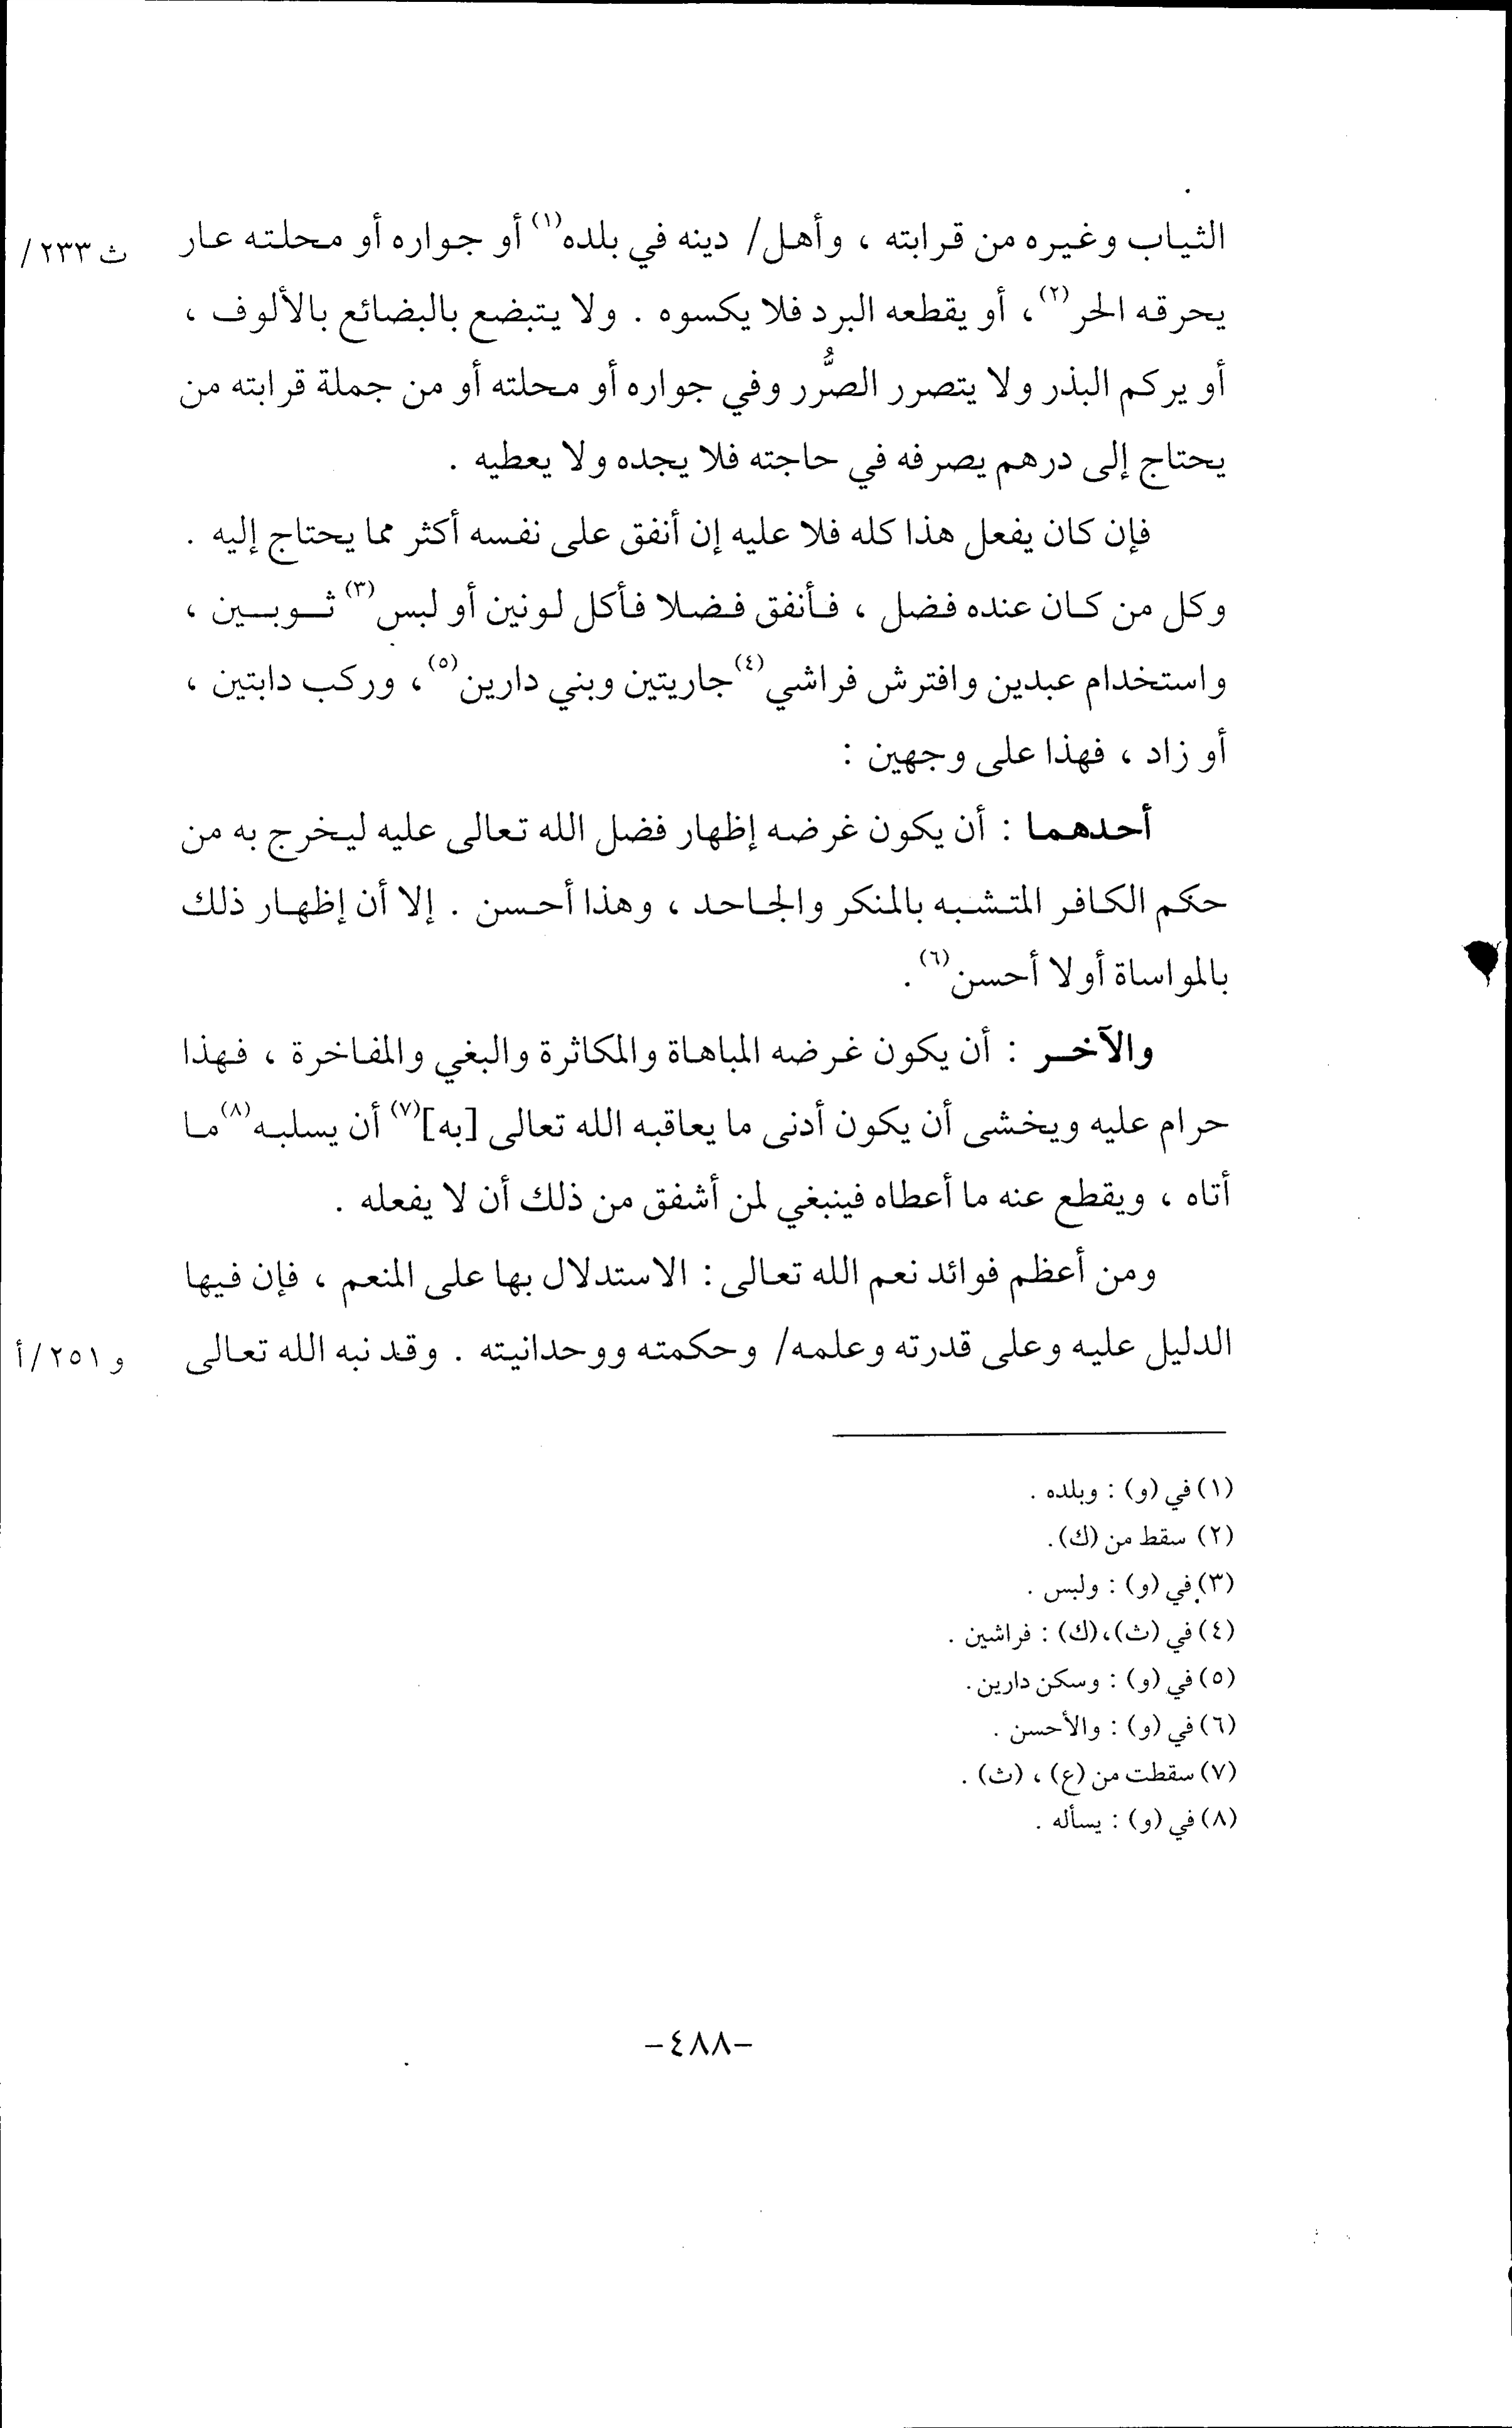 الثياب وغيره من قرابته ، وأهل/ دينه في بلده(١) أو جواره أو محلته عار
ث ٢٣٣/
يحرقه الحر(٢)، أو يقطعه البرد فلا يكسوه . ولا يتبضع بالبضائع بالألوف ،
أو يركم البذر ولا يتصرر الصُّرر وفي جواره أو محلته أو من جملة قرابته من
يحتاج إلى درهم يصرفه في حاجته فلا يجده ولا يعطيه .
فإن كان يفعل هذا كله فلا عليه إن أنفق على نفسه أكثر مما يحتاج إليه .
وكل من كان عنده فضل ، فأنفق فضلا فأكل لونين أو لبس(٣) ثوبين ،
واستخدام عبدين وافترش فراشي(٤) جاريتين وبني دارين(٥)، وركب دابتين ،
أو زاد ، فهذا على وجهين :
أحدهما : أن يكون غرضه إظهار فضل الله تعالى عليه ليخرج به من
حكم الكافر المتشبه بالمنكر والجاحد ، وهذا أحسن . إلا أن إظهار ذلك
بالمواساة أولا أحسن(٦).
والآخر : أن يكون غرضه المباهاة والمكاثرة والبغي والمفاخرة ، فهذا
حرام عليه ويخشى أن يكون أدنى ما يعاقبه الله تعالى [به](٧) أن يسلبه(٨) ما
أتاه ، ويقطع عنه ما أعطاه فينبغي لمن أشفق من ذلك أن لا يفعله .
ومن أعظم فوائد نعم الله تعالى : الاستدلال بها على المنعم ، فإن فيها
الدليل عليه وعلى قدرته وعلمه/ وحكمته ووحدانيته . وقد نبه الله تعالى
و ٢٥١/أ
(١) في (و) : وبلده .
(٢) سقط من (ك).
(٣) في (و) : ولبس .
(٤) في (ث)، (ك) : فراشين .
(٥) في (و) : وسكن دارين.
(٦) في (و) : والأحسن .
(٧) سقطت من (ع) ، (ث) .
(٨) في (و) : يسأله .
-٤٨٨-